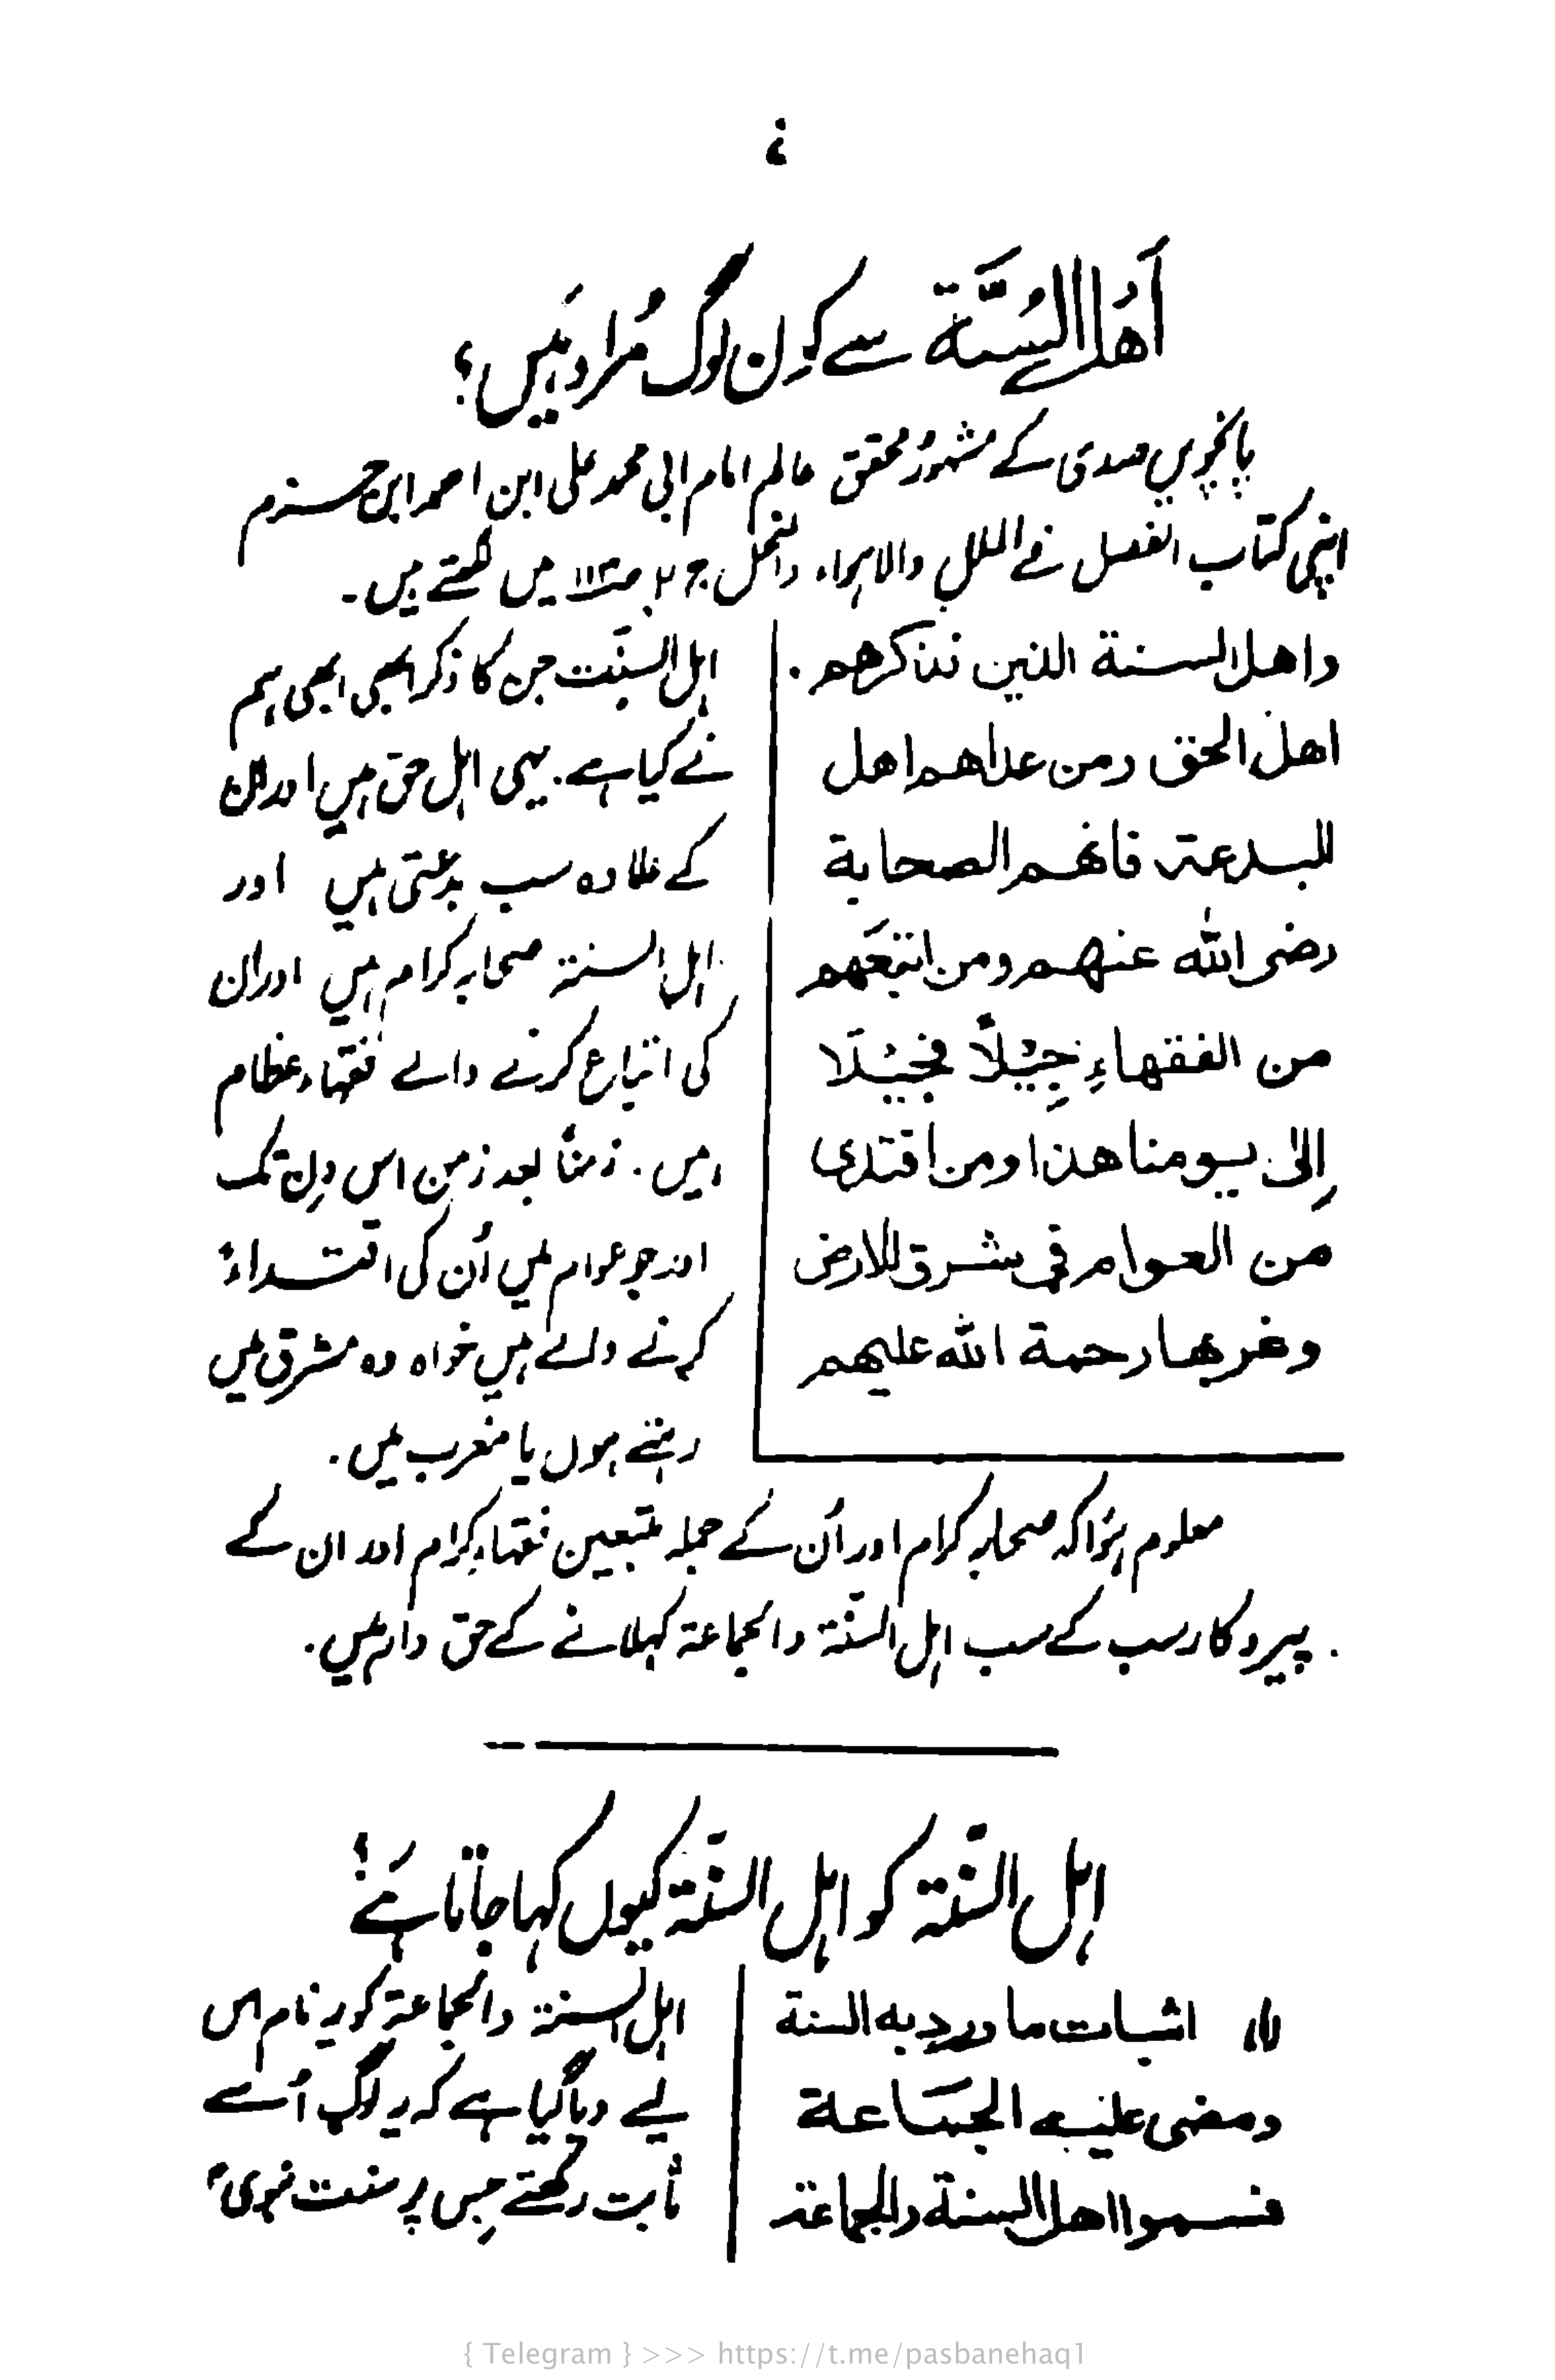 أَهلُ السُنَّة سے کون لوگ مُراد ہَیں؟
پانچویں صدی کے مشہُور محقق عالم امام ابی محمد علی ابن احمد ابن حسزم
اپنی کتاب الفصل فے الملل والاہواء والنحل ج ۲ ص۱۱۳ میں لکھتے ہیں۔
واهل السنة الذین نذکرهم.
اهل الحق ومن عداهم اهل
البدعة فانهم الصحابة
رضی الله عنهم ومن اتبعَهم
من الفقهاءِ جِیْلاً فجَیْلاً
إِلیٰ یومنا هذا ومن اقتدی
من العوام فی شرق الارض
وغربها رحمة الله علیهم
اہل السنّت جن کا ذکر ابھی ابھی ہم
نے کیا ہے۔ یہی اہل حق ہیں اور ان
کے علاوہ سب بدعتی ہیں اور
اہل السنۃ صحابہ کرام ہیں اور ان
کی اتباع کرنے والے فقہاء عظام
ہیں۔ زمناً بعد زمنٍ اس دن تک
اور جو عوام میں اُن کی اقتداء
کرنے والے ہیں خواہ وہ مشرق میں
رہتے ہوں یا مغرب میں۔
معلوم ہُوا کہ صحابہ کرام اور اُن کے جملہ متبعین فقہاء کرام اور ان کے
پیروکار سب کے سب اہل السنّۃ والجماعۃ کہلانے کے حق دار ہیں۔
اہل السنّۃ کو اہل السنّۃ کیوں کہا جاتا ہَے؟
(۱) اثبات ما ورد به السنة
ومضی علیه الجمَاعة
فسموا اهل السنة والجماعة
اہل السنۃ والجماعۃ کو یہ نام اس
لیے دیا گیا ہے کہ یہ لوگ اُسے
ثابت رکھتے جس پر سنت نبوی
{ Telegram } >>> https://t.me/pasbanehaq1